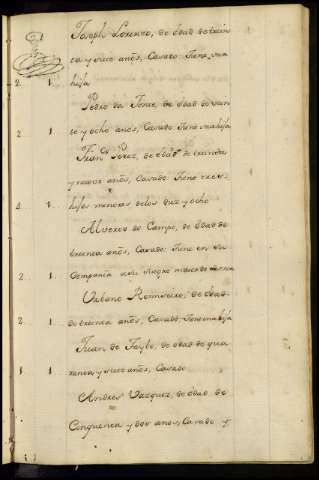 Joseph Lorenzo, de edad de trein
ta y siete años, Casado Tiene una
2 1 hija
Pedro da Torre, de edad de
te y ocho años, Casado Tiene una hija
2 1
Juan Perez, de edad de treinta
y nueve años, Casado: Tiene tres
4 1 hijos menores de los diez y ocho
Alverto do Campo, de edad de
treinta años, Casado: Tiene en su
2 1 Compañia
Urbano Rermueixo, de edad
2 1 de treinta años, Casado, Tiene una hija
Juan de Taylo, de edad de qua
1 1 renta y siete años, Casado
Andres Vazquez, de edad, de
Cinquenta y dos años, Casado y